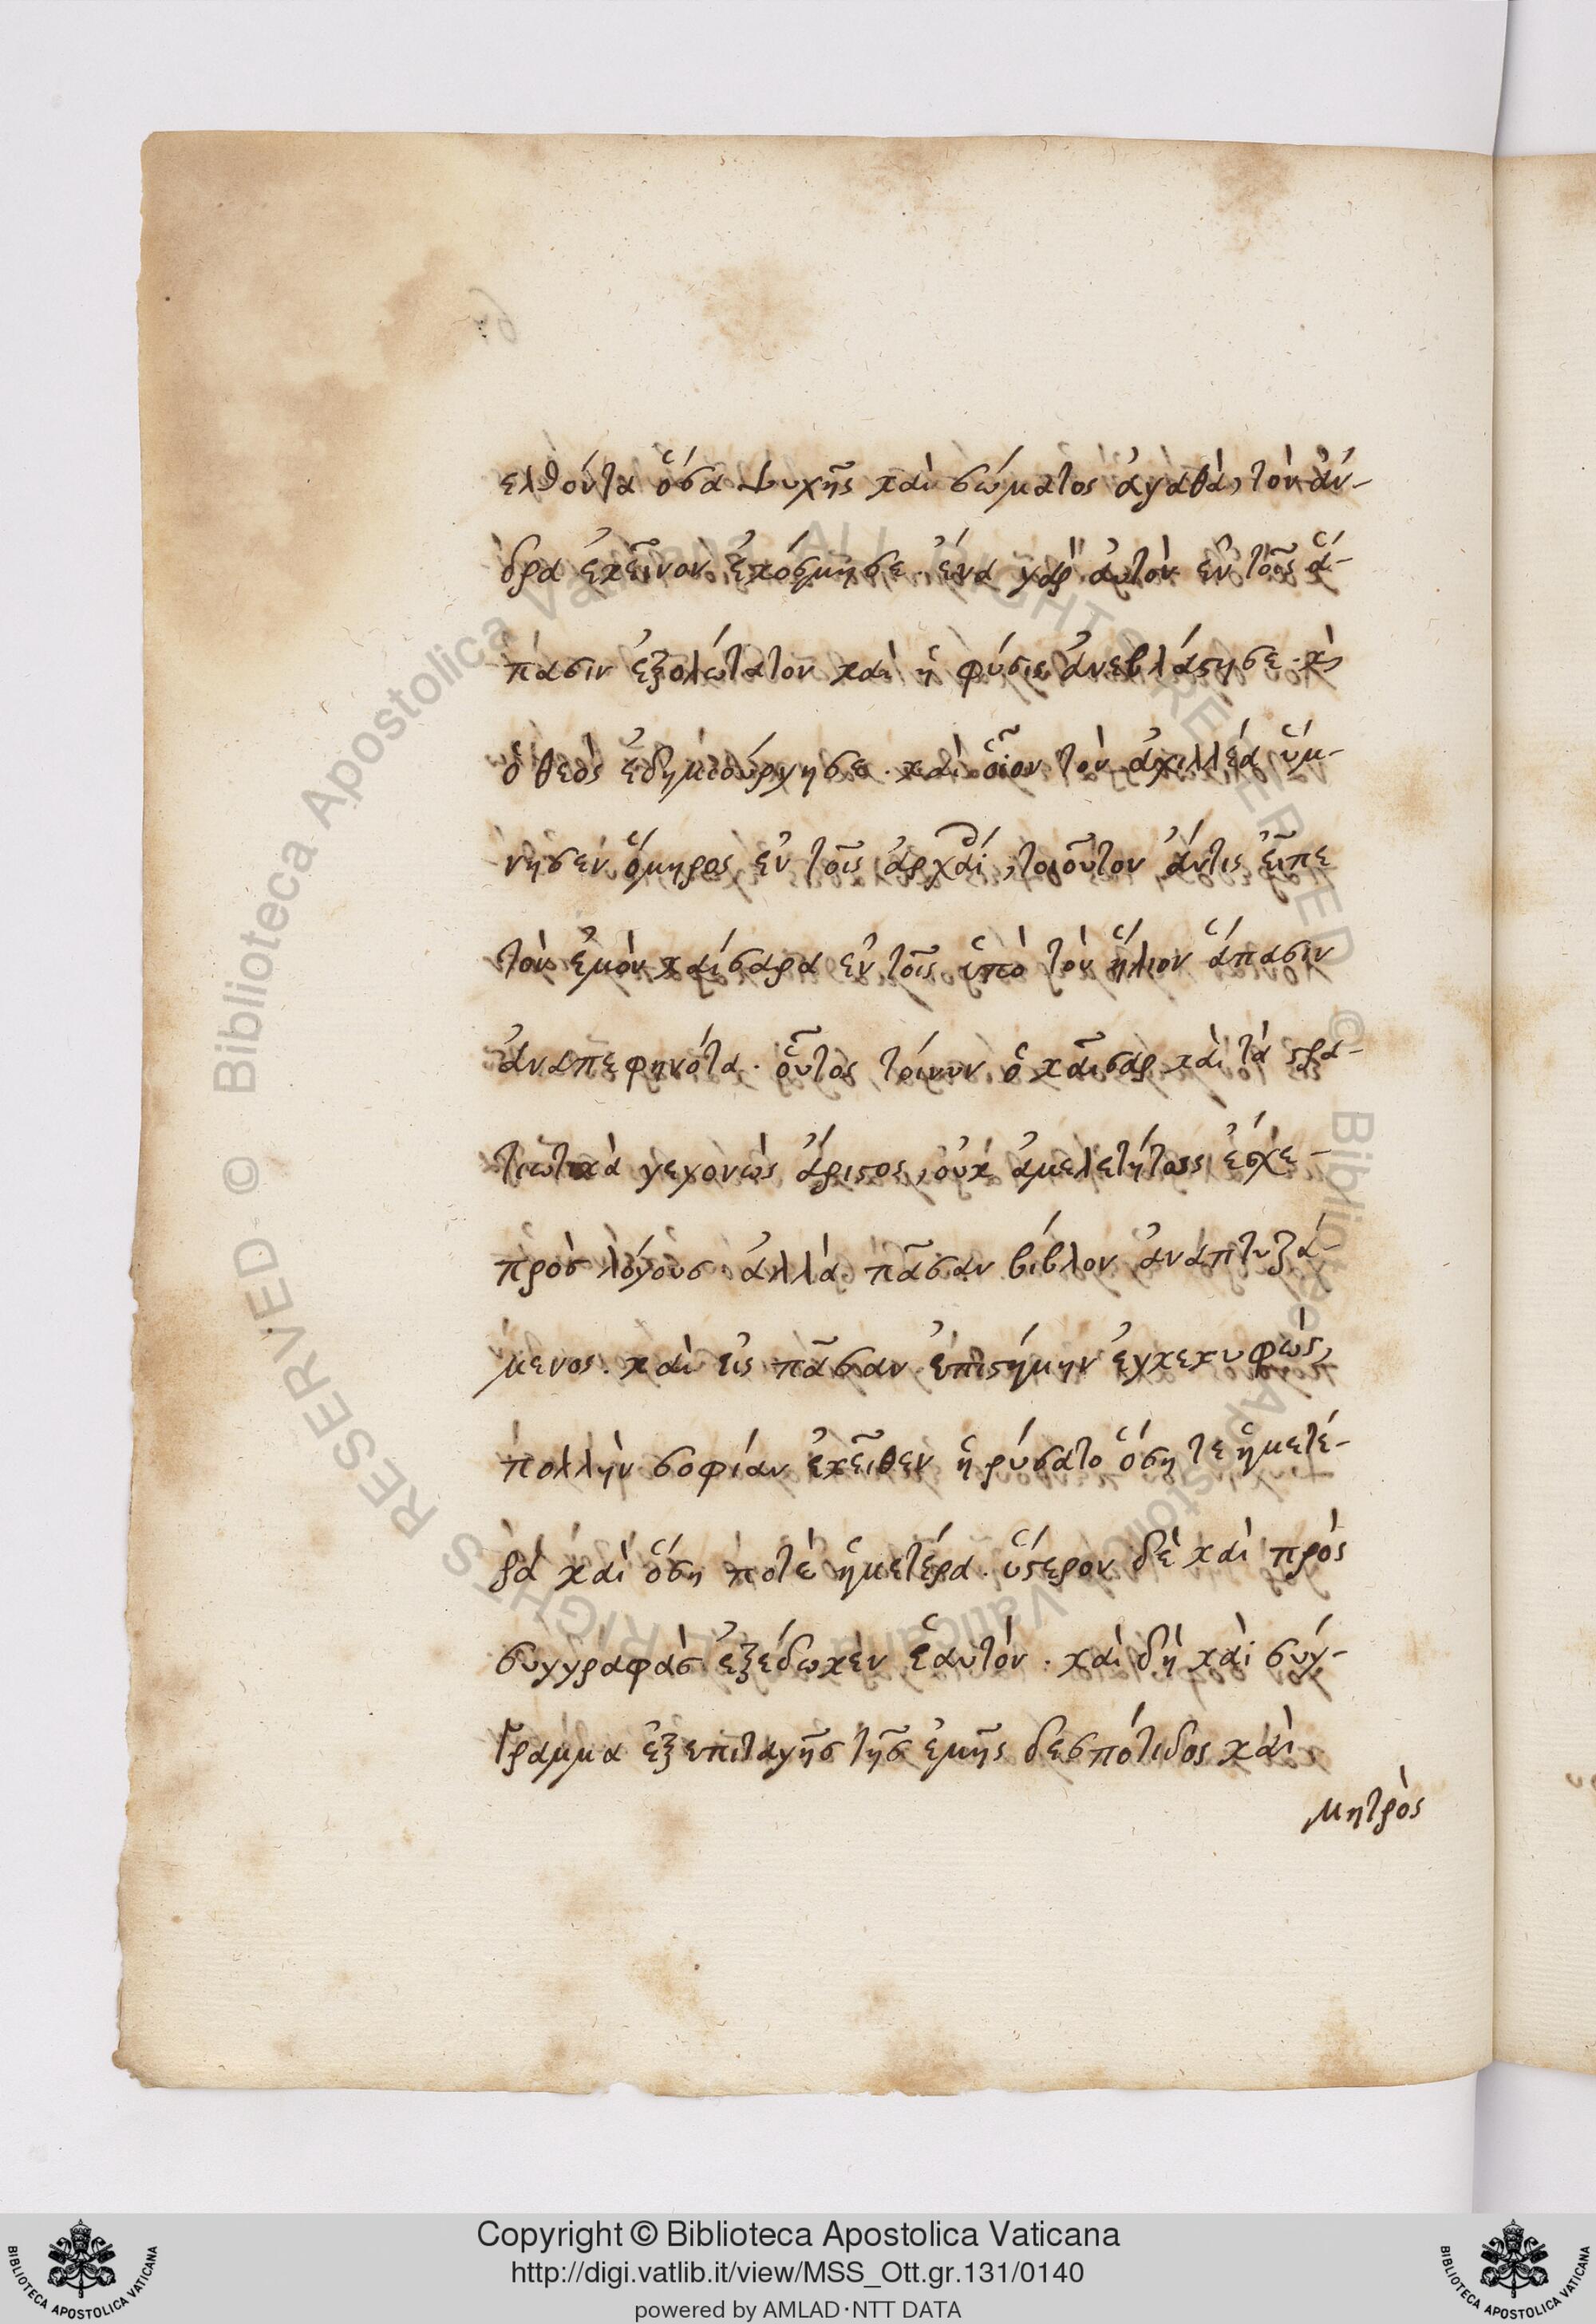 ελθόντα ὅσα ψυχῆς καὶ σώματος ἀγαθὰ, τὸν ἀν-
δρα ἐκεῖνον ἐκόσμησε. ἕνα γὰρ αὐτὸν ἐν τοῖς ἅ-
πασιν ἐξολώτατον καὶ ἡ φύσις ἀνεβλάστησε. κὶ
ὁ θεὸς ἐδημιούργησε. καὶ οἷον τὸν ἀχιλλέα ὕμ-
νησεν ὅμηρος ἐν τοῖς ἀρχαί, τοιοῦτον ἄντις εἶπε
τὸν ἐμὸν καίσαρα ἐν τοῖς ὑπὸ τὸν ἥλιον ἅπασιν
ἀναπεφηνότα. οὗτος τοίνυν ὁ καῖσαρ καὶ τὰ στρα-
τιωτικὰ γεγονὼς ἄριστος, οὐκ ἀμελετήτως ἔσχε-
πρὸς λόγους. ἀλλὰ πᾶσαν βίβλον ἀναπτυξά-
μενος. καὶ εἰς πᾶσαν ἐπιστήμην ἐγκεκυφὼς,
πολλὴν σοφίαν ἐκεῖθεν ἡρύσατο ὅση τε ἡμετέ-
ρα καὶ ὅση ποτὲ ἡμετέρα. ὕστερον δὲ καὶ πρὸς
συγγραφὰσ ἐξέδωκεν ἑαυτόν. καὶ δὴ καὶ σύγ-
γραμμα ἐξεπιταγῆσ τῆσ ἐμῆς δεσπότιδος καὶ
μητρὸς
Copyright © Biblioteca Apostolica Vaticana
http://digi.vatlib.it/view/MSS_Ott.gr.131/0140
powered by AMLAD·NTT DATA
BIBLIOTECA APOSTOLICA VATICANA
BIBLIOTECA APOSTOLICA VATICANA
© Biblioteca Apostolica Vaticana ALL RIGHTS RESERVED
© Biblioteca Apostolica Vaticana ALL RIGHTS RESERVED